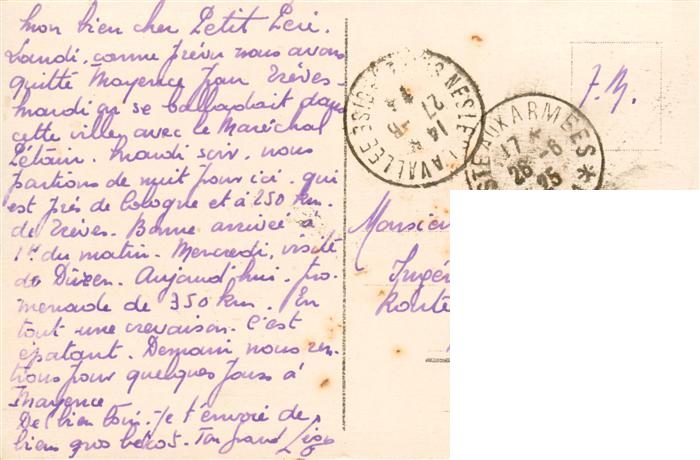 Mon bien cher Petit Père.
Lundi, comme prévu nous avons
quitté Mayence pour Trèves -
Mardi on se balladait dans
cette ville, avec le Maréchal
Pétain. Mardi soir, nous
partions de nuit pour ici, qui
est près de Cologne et à 250 km.
de Trèves. Bonne arrivée à
1h du matin. Mercredi, visite
de Düren. Aujourd'hui, pro-
menade de 350 km. En
tout une crevaison. C'est
épatant. Demain nous ren-
trons pour quelques jours à
Mayence
De bien loin, je t'envoie de
bien gros bécots. Ton grand
NESLE LAVALLEE
14
27 4
AUX ARMEES *
17 * -6
26 25
F. M.
Monsieur
Ingé
Route